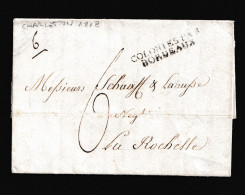 CHARLESTON 1818
6
COLONIES PAR
BORDEAUX
Messieurs Schaaff &
Negts
6
La Rochelle